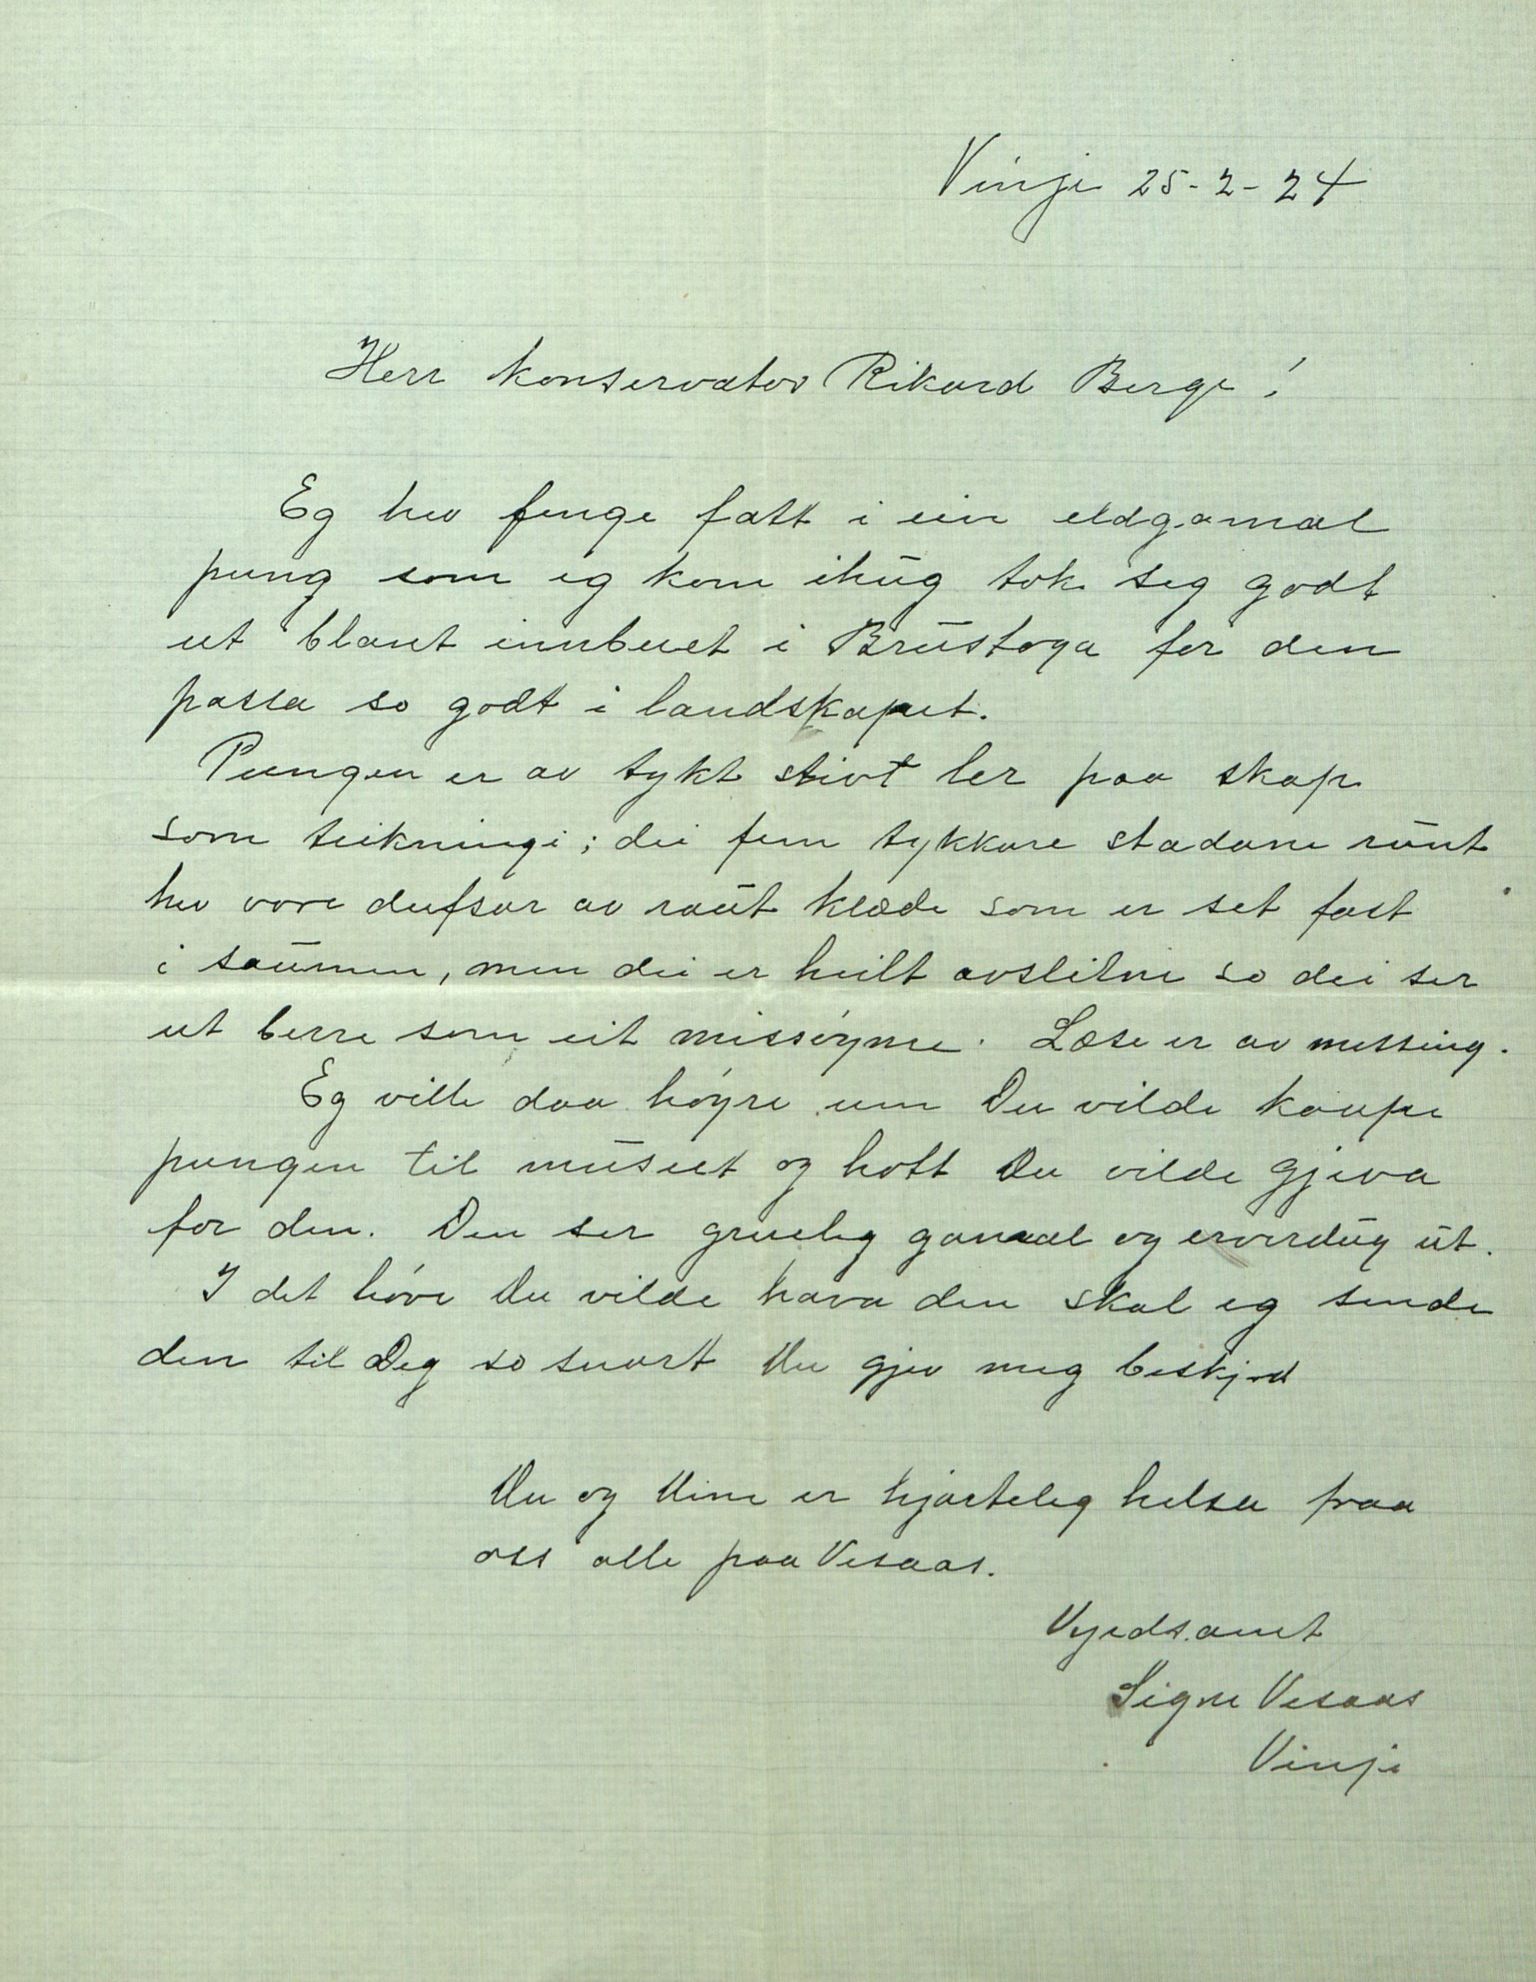 Vinje 25-2-24
Herr konservator Rikard Berge!
Eg hev fenge fatt i ein eldgamal
pung som eg kom ihug tok seg godt
ut blant innbuet i Brustoga for den
passa so godt i landskapet.
Pungen er av tykt stivt ler paa skap
som teikningi; dei fem tykkare stadane runt
hev vore dufsar av raut klæde som er set fast
i saumen, men dei er heilt avslitne so dei ser
ut berre som eit missyne. Læse er av messing.
Eg ville daa høyre um Du vilde kaupe
pungen til museet og hott Du vilde gjeva
for den. Den ser gruelig gamal og ervirdug ut.
I det høve Du vilde hava den skal eg sende
den til Deg so snart Du gjev meg beskjed
Du og Dine er hjarteleg helsa fraa
oss alle paa Vesaas.
Vyrdsamt
Signe Vesaas
Vinje